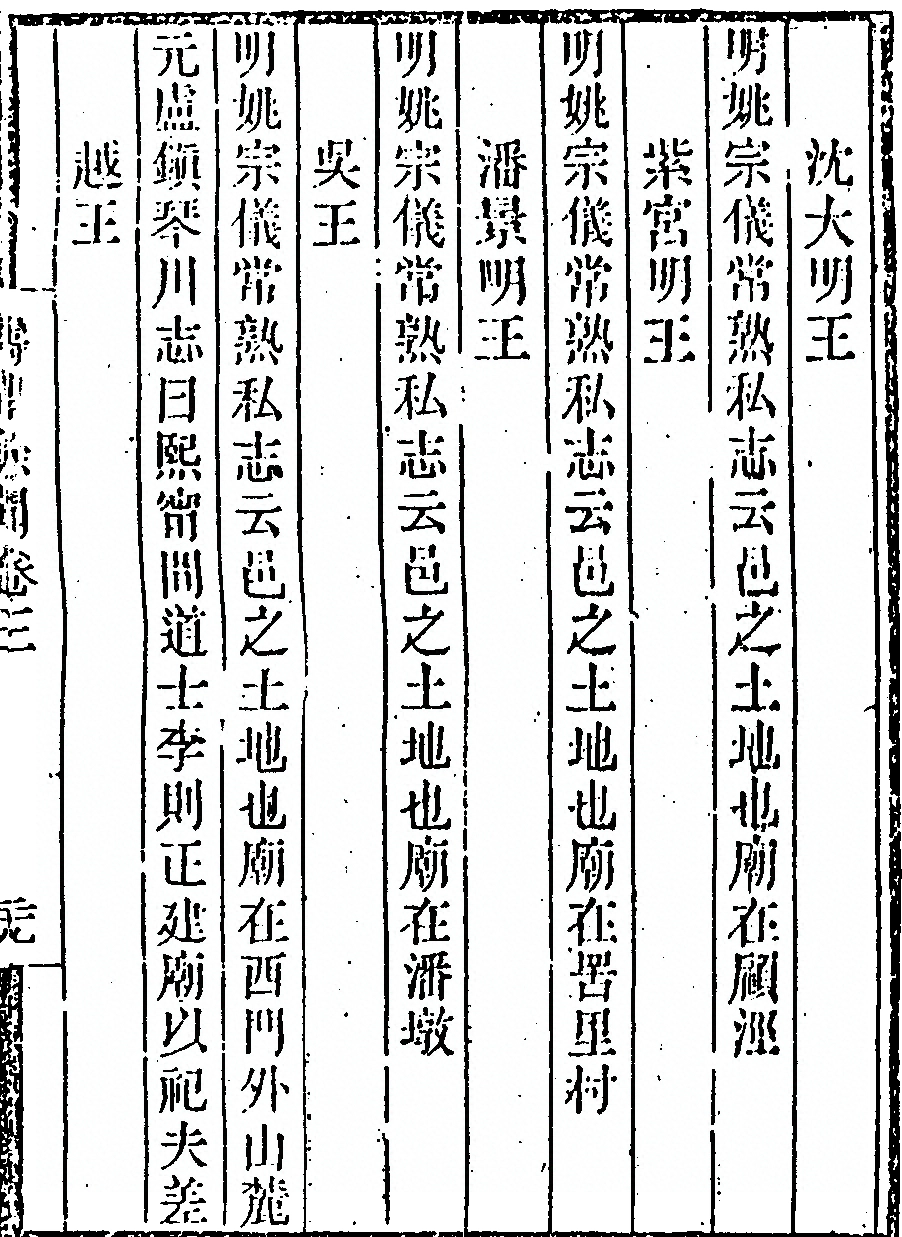 沈大明王
明姚宗儀常熟私志云邑之土地也廟在顧涇
紫宮明王
明姚宗儀常熟私志云邑之土地也廟在罟里村
潘景明王
明姚宗儀常熟私志云邑之土地也廟在潘墩
吳王
明姚宗儀常熟私志云邑之土地也廟在西門外山麓
元盧鎮琴川志曰熙甯間道士李則正建廟以祀夫差
越王
聞卷三